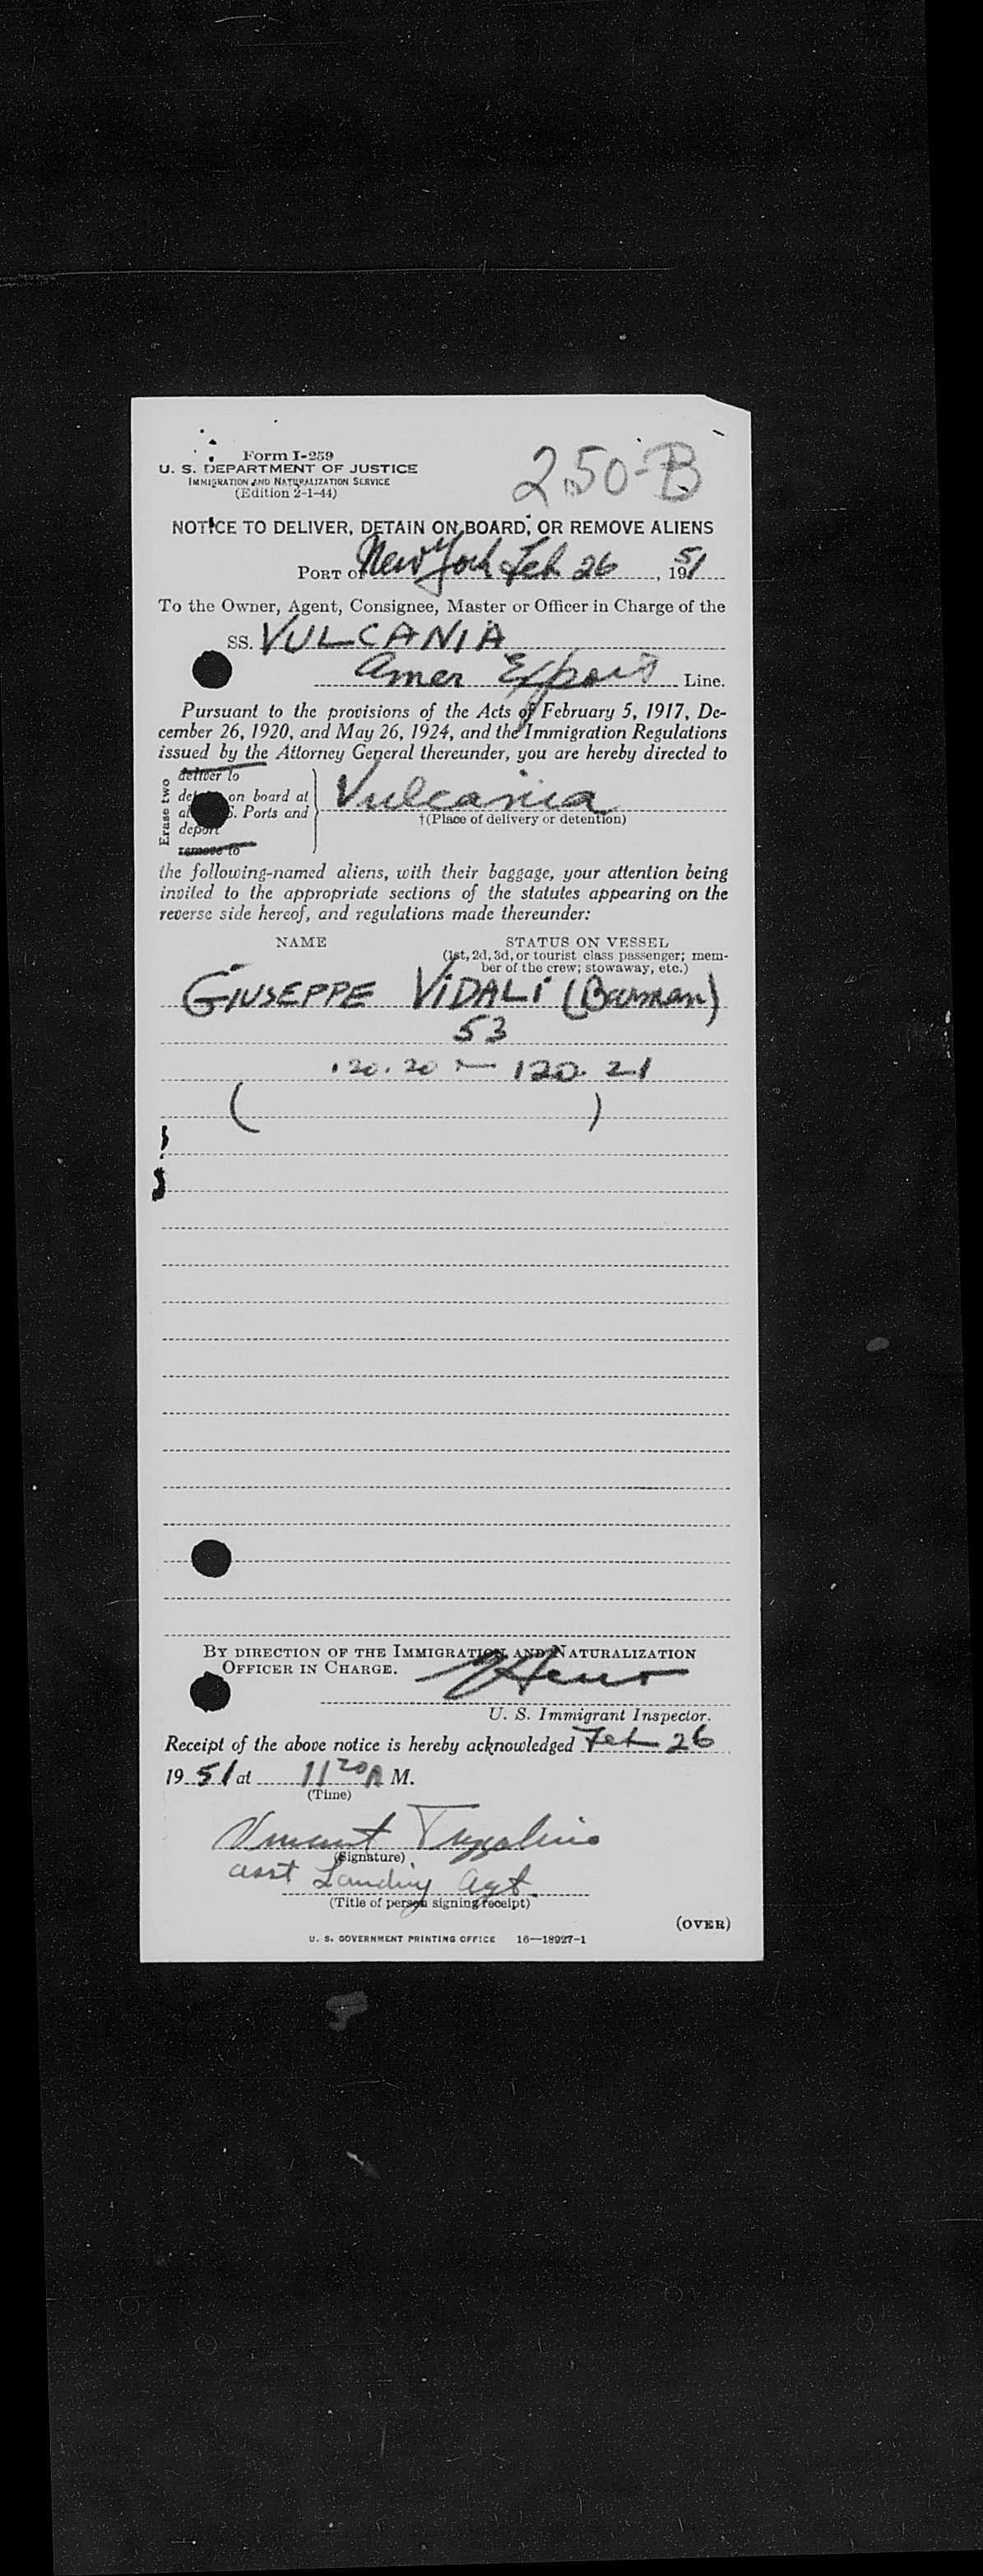 Form I-259
U. S. DEPARTMENT OF JUSTICE
IMMIGRATION AND NATURALIZATION SERVICE
(Edition 2-1-44)
250-B
NOTICE TO DELIVER, DETAIN ON BOARD, OR REMOVE ALIENS
PORT OF New York Feb 26, 1951
To the Owner, Agent, Consignee, Master or Officer in Charge of the
SS. VULCANIA
Amer Export Line.
Pursuant to the provisions of the Acts of February 5, 1917, De-
cember 26, 1920, and May 26, 1924, and the Immigration Regulations
issued by the Attorney General thereunder, you are hereby directed to
Erase two
deliver to
on board at
Ports and
deport
remove to
Vulcania
†(Place of delivery or detention)
the following-named aliens, with their baggage, your attention being
invited to the appropriate sections of the statutes appearing on the
reverse side hereof, and regulations made thereunder:
NAME STATUS ON VESSEL
(1st, 2d, 3d, or tourist class passenger; mem-
ber of the crew; stowaway, etc.)
GIUSEPPE VIDALI (Barman)
53
120.20 — 120.21
( )
BY DIRECTION OF THE IMMIGRATION AND NATURALIZATION
OFFICER IN CHARGE.
U. S. Immigrant Inspector.
Receipt of the above notice is hereby acknowledged Feb 26
1951 at 11 20 A M.
(Time)
Vincent
(Signature)
asst Landing Agt.
(Title of person signing receipt)
(OVER)
U. S. GOVERNMENT PRINTING OFFICE 16—18927-1